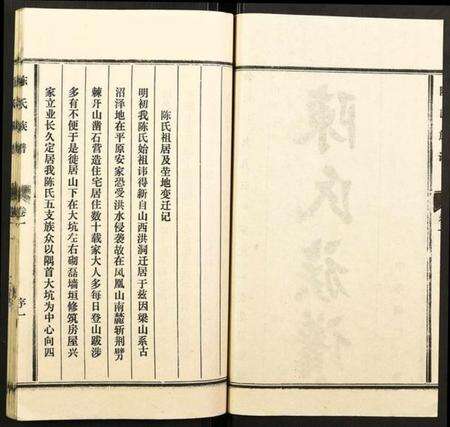 陈氏祖居及茔地变迁记
明初我陈氏始祖讳得新自山西洪洞迁居于兹因梁山系古
沼泽地在平原安家恐受洪水侵袭故在凤凰山南麓斩荆劈
棘开山凿石营造住宅居住数十载家大人多每日登山跋涉
多有不便于是徙居山下在大坑左右砌磊墙垣修筑房屋兴
家立业长久定居我陈氏五支族众以隅首大坑为中心向四
陈氏族谱
卷一
序一
陳氏族譜